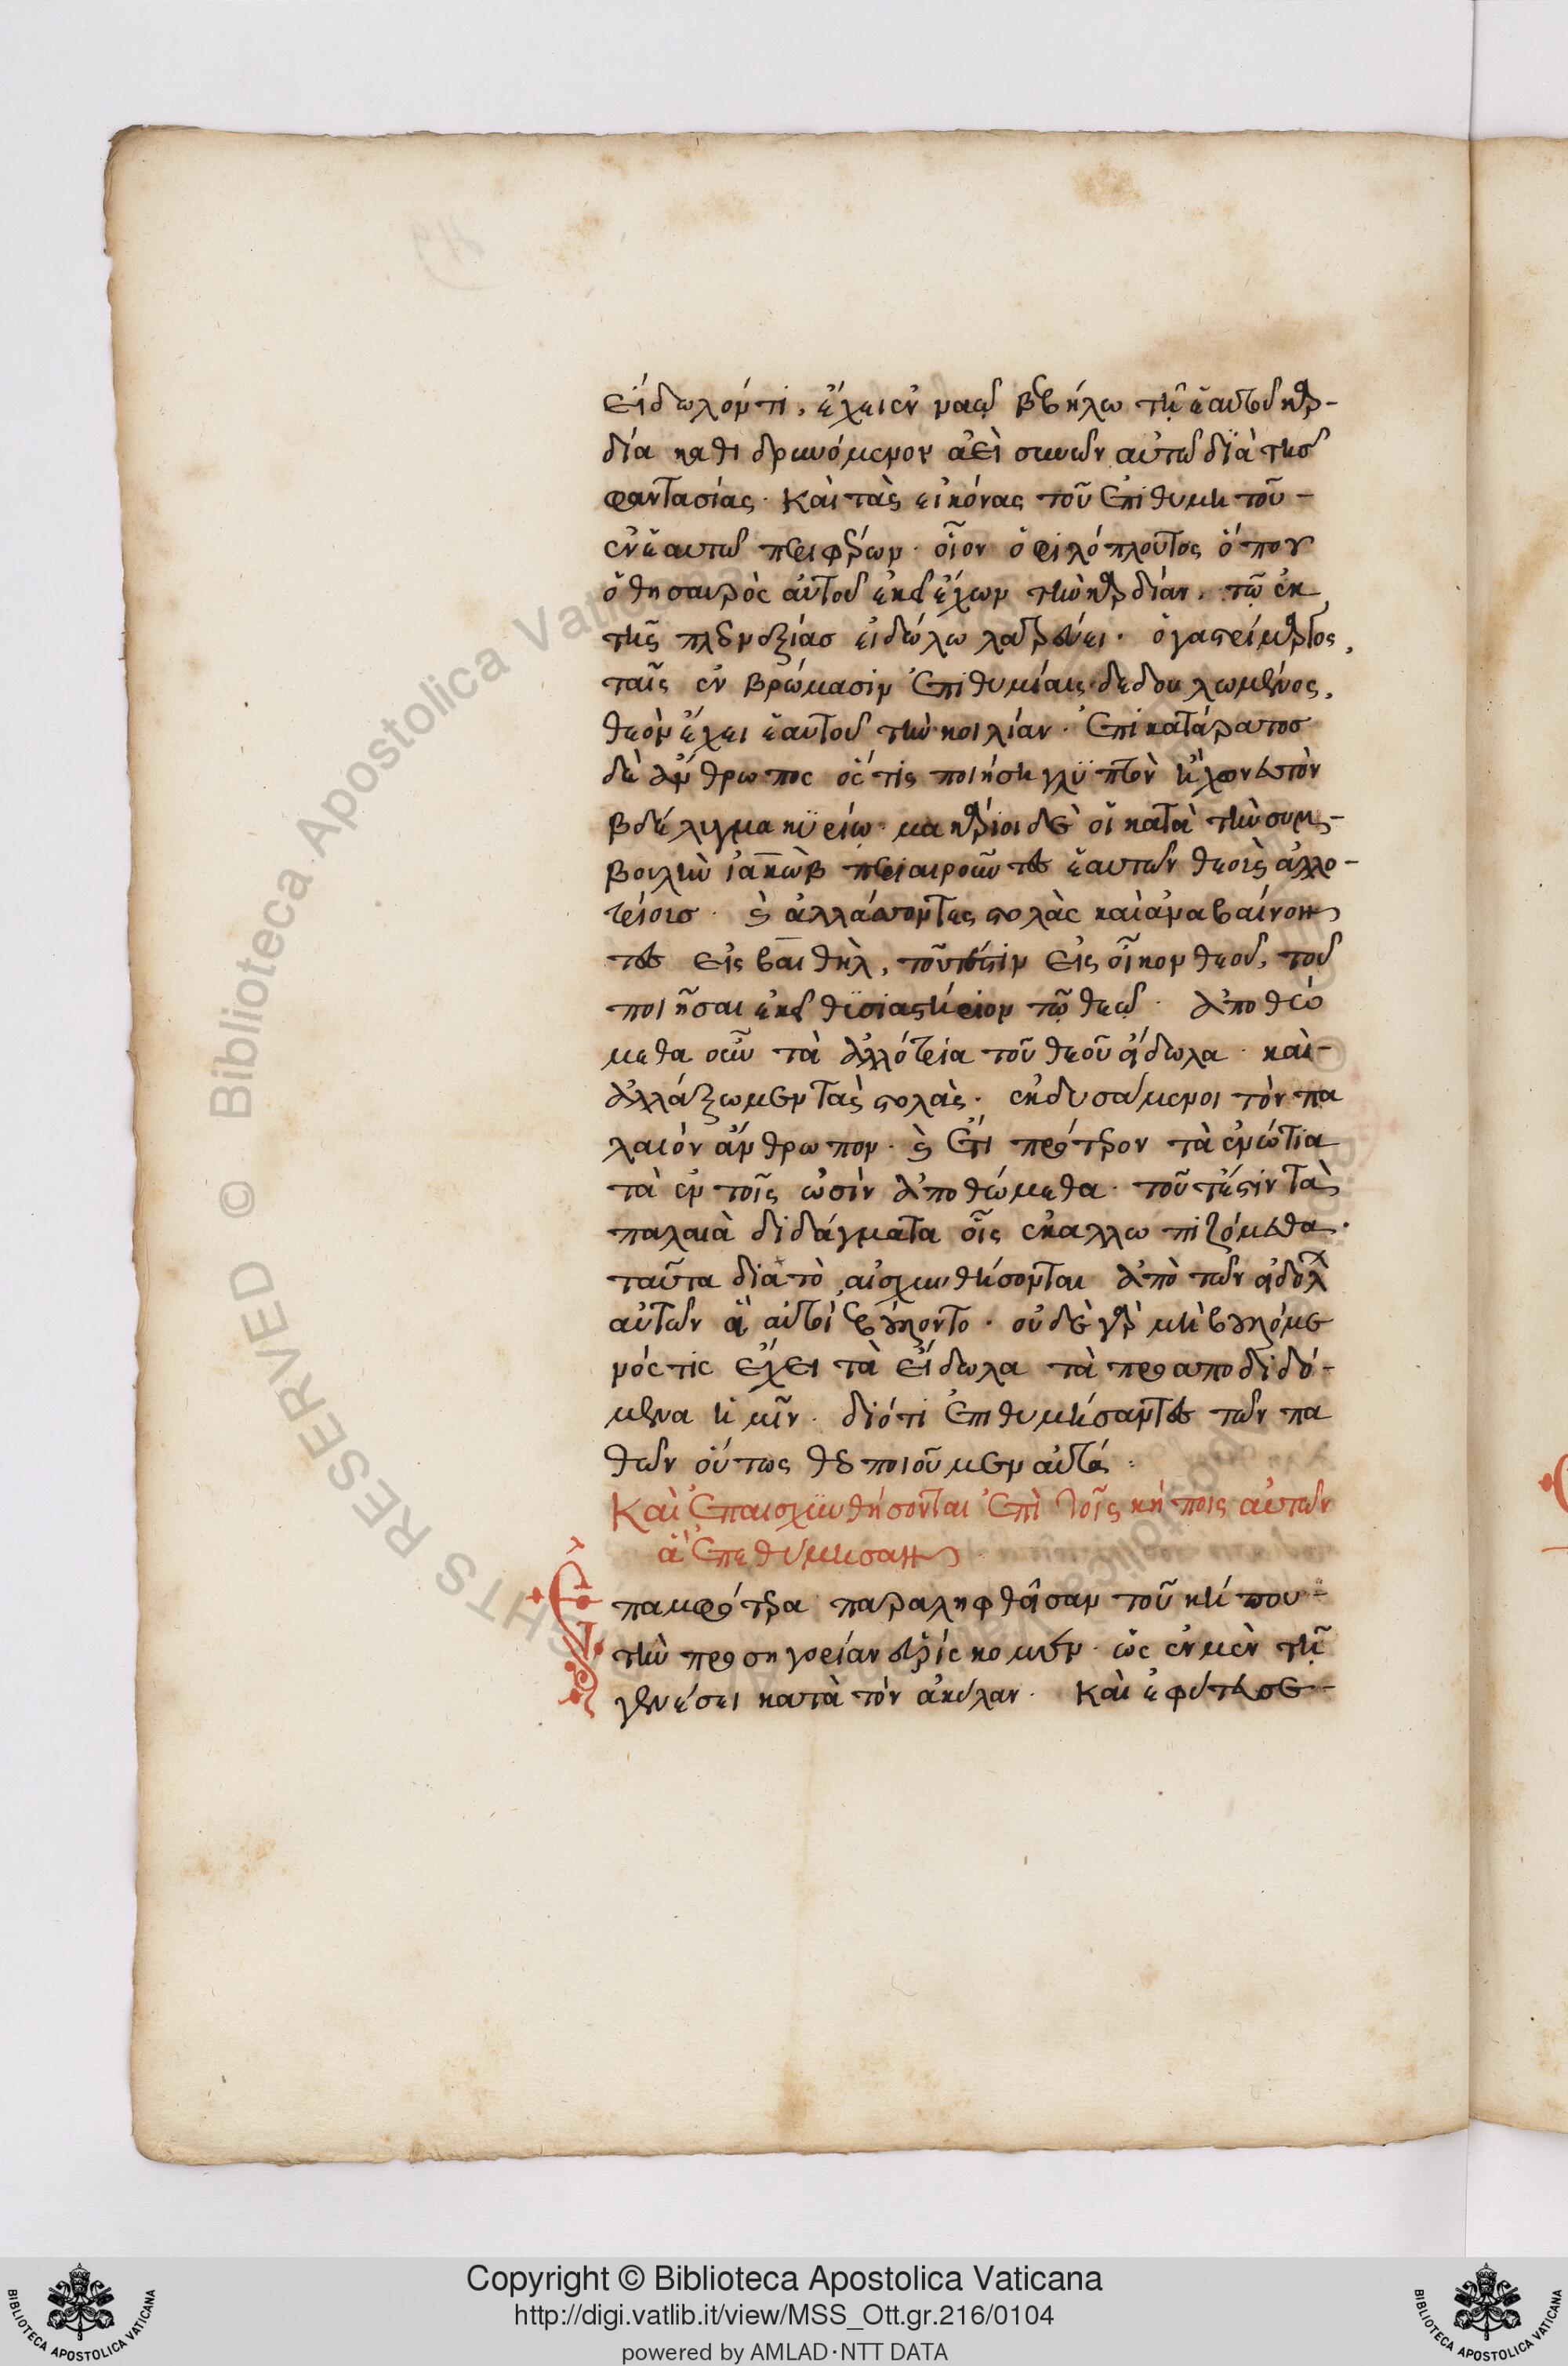 εἴδωλόν τι, ἔχει ἐν ναῷ βεβήλω τῇ ἑαυτοῦ καρ-
δία καθιδρυνόμενον ἀεὶ συνὸν αὐτῶ διὰ τῆς
φαντασίας. Καὶ τὰς εἰκόνας τοῦ ἐπιθυμητοῦ-
ἐν ἑαυτῶ περιφέρων. οἷον ὁ φιλόπλουτος ὅπου
ὁ θησαυρὸς αὐτοῦ ἐκεῖ ἔχων τὴν καρδίαν. τῶ ἐκ
τῆς πλεονεξίας εἰδώλω λατρεύει. ὁ γαστρίμαργος,
ταῖς ἐν βρώμασιν ἐπιθυμίαις δεδουλωμένος,
θεὸν ἔχει ἑαυτοῦ τὴν κοιλίαν. ἐπικατάρατος
δὲ ἄνθρωπος ὅς τις ποιήση γλϋπτὸν ἢ χωνευτὸν
βδέλυγμα κϋρίω. μακάριοι δὲ οἱ κατὰ τὴν συμ-
βουλὴν ἰακὼβ περιαιροῦντες ἑαυτῶν θεοὺς ἀλλο-
τρίους. καὶ ἀλλάσσοντες στολὰς καὶ ἀναβαίνον
τες εἰς βαιθὴλ, τουτέστιν εἰς οἶκον θεοῦ, τοῦ
ποιῆσαι ἐκεῖ θϋσιαστήριον τῷ θεῷ. ἀποθώ
μεθα οὖν τὰ ἀλλότρια τοῦ θεοῦ εἴδωλα. καὶ-
ἀλλάξωμεν τὰς στολὰς. ἐκδυσάμενοι τὸν πα
λαιὸν ἄνθρωπον. καὶ ἔτι πρότερον τὰ ἐνώτια
τὰ ἐν τοῖς ὠσὶν ἀποθώμεθα. τουτέστιν τὰ
παλαιὰ διδάγματα οἷς ἐκαλλωπιζόμεθα.
ταῦτα διὰ τὸ, αἰσχυνθήσονται ἀπὸ τῶν εἰδώλ
αὐτῶν ἃ αὐτοὶ ἐβούλοντο. οὐδὲ γὰρ μὴ βουλόμε
νός τις ἔχει τὰ εἴδωλα τὰ προαποδιδό-
μενα ἡμῖν. διότι ἐπιθυμήσαντες τῶν πα
θῶν οὕτως θεοποιοῦμεν αὐτά:
Καὶ ἐπαισχϋνθήσονται ἐπὶ τοῖς κήποις αὐτῶν
ἃ ἐπεθύμησαν
Ἐπαμφότερα παραληφθεῖσαν τοῦ κήπου-
τὴν προσηγορίαν εὑρίσκομεν. ὡς ἐν μὲν τῇ
γενέσει κατὰ τὸν ἀκύλαν. Καὶ ἐφύτευσε-
Copyright © Biblioteca Apostolica Vaticana
http://digi.vatlib.it/view/MSS_Ott.gr.216/0104
powered by AMLAD·NTT DATA